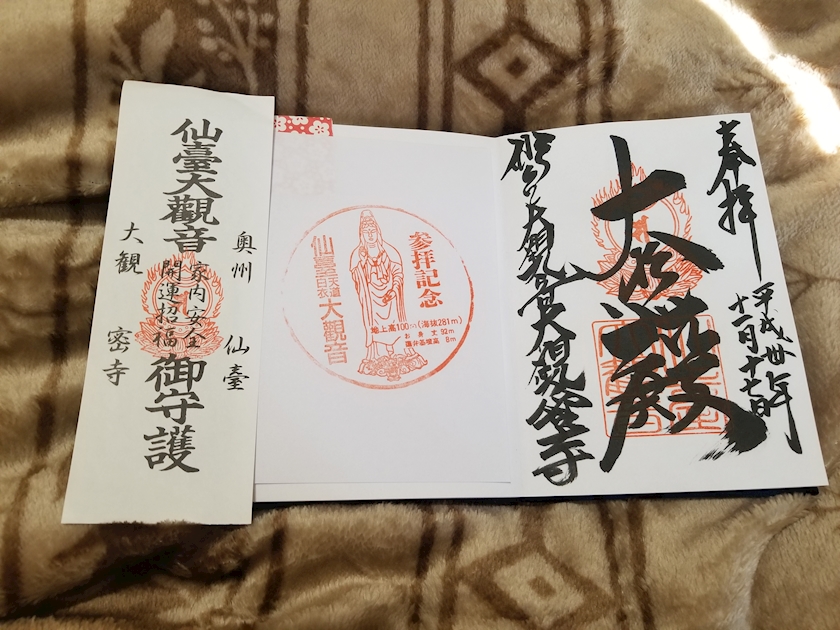 奥州 仙臺
仙臺大觀音
家内安全
開運招福
御守護
大観 密寺
参拝記念
仙臺天道白衣大觀音
地上高100㍍(海抜281m)
お身丈 92m
蓮弁基壇高 8m
奉拝
平成卅年
十一月十七日
殿
大観音大観密寺